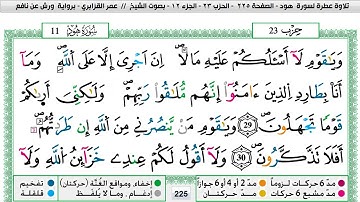 تلاوة عطرة لسورة هود - الصفحة ٢٢٥ - الحزب ٢٣ - الجزء ١٢ - بصوت الشيخ // عمر القزابري - برواية ورش عن نافع
حِزْب 23
سُورَةُ هُود 11
وَيَٰقَوْمِ لَآ أَسْـَٔلُكُمْ عَلَيْهِ مَالًا إِنْ أَجْرِىَ إِلَّا عَلَى اَللَّهِ وَمَآ
أَنَا بِطَارِدِ اِلذِينَ ءَامَنُوٓاْ إِنَّهُم مُّلَٰقُواْ رَبِّهِمْ وَلَٰكِنِّىَ أَر۪يٰكُمْ
قَوْمًا تَجْهَلُونَ 29 وَيَٰقَوْمِ مَنْ يَّنصُرُنِى مِنَ اَللَّهِ إِن طَرَدتُّهُمُۥٓ
أَفَلَا تَذَّكَّرُونَ 30 وَلَآ أَقُولُ لَكُمْ عِندِى خَزَآئِنُ اُللَّهِ وَلَآ
مدّ 6 حركات لزوماً مدّ 2 أو 4 أو 6 جوازاً إخفاء، ومواقع الغُنَّة (حركتان) تفخيم
مدّ مشبع 6 حركات مدّ حركتان 225 إدغام، وما لا يُلفَظ قلقلة